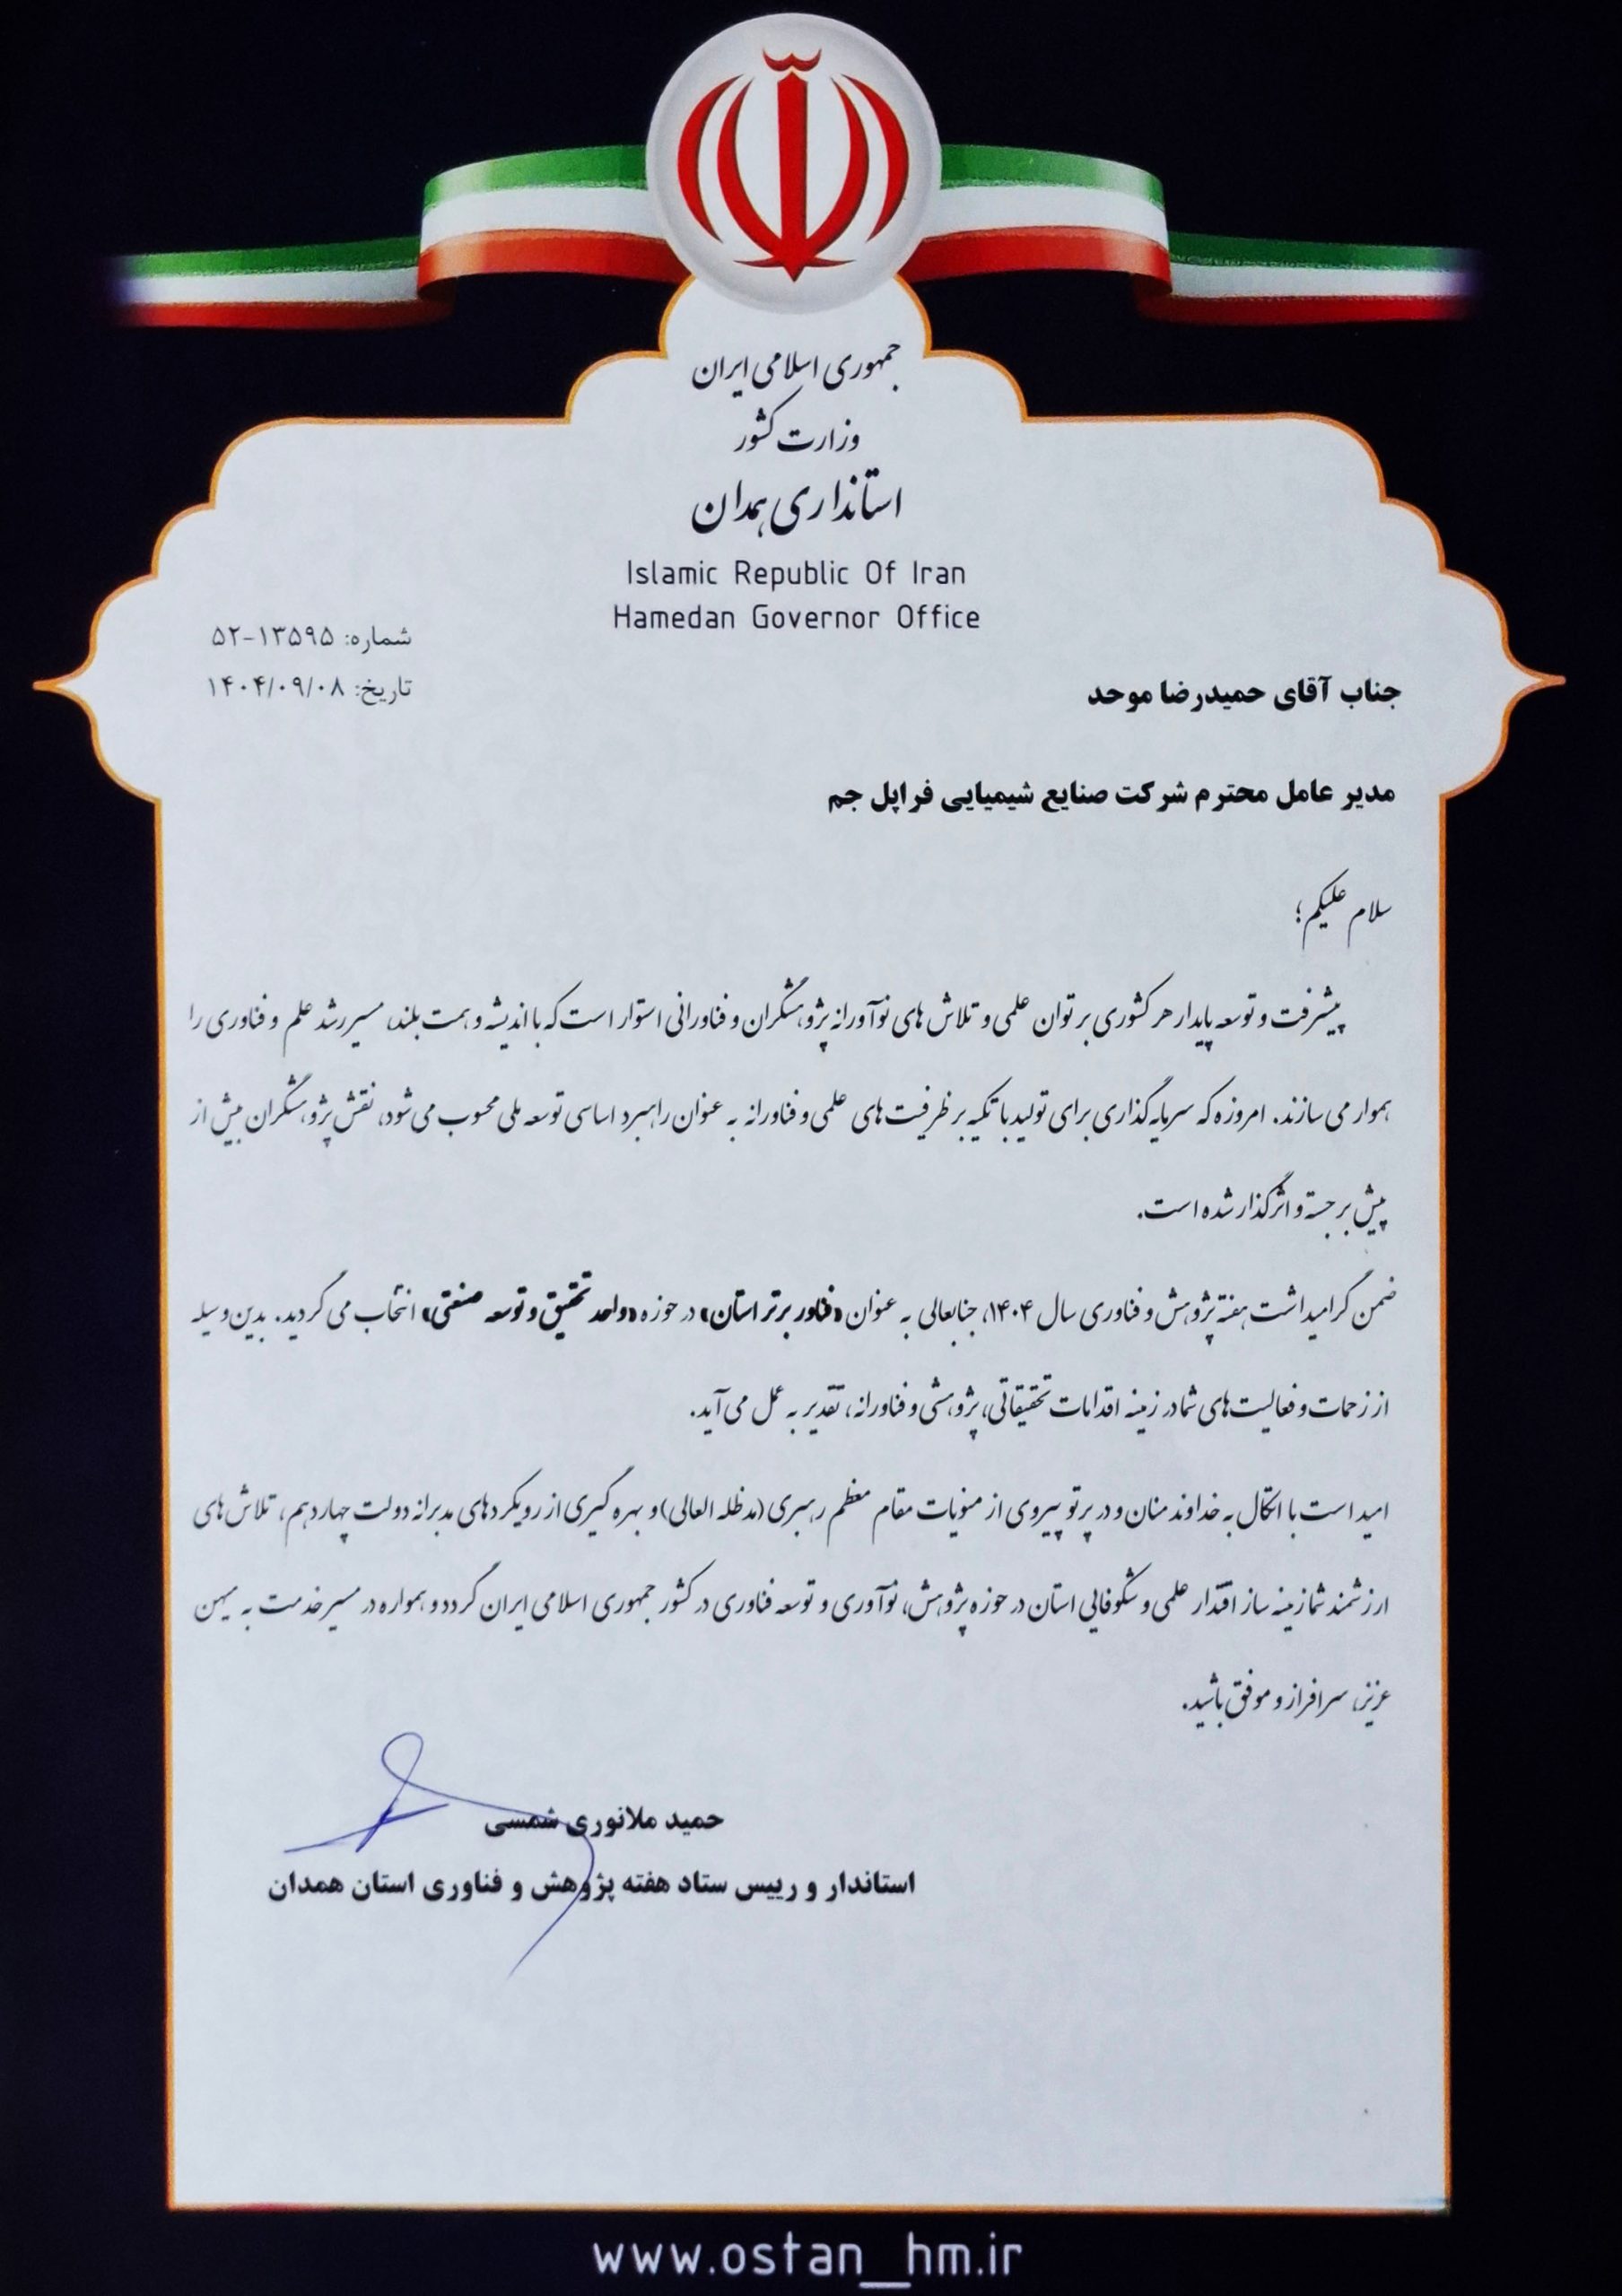 جمهوری اسلامی ایران
وزارت کشور
استانداری همدان
Islamic Republic Of Iran
Hamedan Governor Office
شماره: ۱۳۵۹۵-۵۲
تاریخ: ۱۴۰۴/۰۹/۰۸
جناب آقای حمیدرضا موحد
مدیر عامل محترم شرکت صنایع شیمیایی فراپل جم
سلام علیکم؛
پیشرفت و توسعه پایدار هر کشوری بر توان علمی و تلاش های نوآورانه پژوهشگران و فناورانی استوار است که با اندیشه و همت بلند، مسیر رشد علم و فناوری را
هموار می سازند. امروزه که سرمایه گذاری برای تولید با تکیه بر ظرفیت های علمی و فناورانه به عنوان راهبرد اساسی توسعه ملی محسوب می شود، نقش پژوهشگران بیش از
پیش برجسته و اثرگذار شده است.
ضمن گرامیداشت هفته پژوهش و فناوری سال ۱۴۰۴، جنابعالی به عنوان «فناور برتر استان» در حوزه «واحد تحقیق و توسعه صنعتی» انتخاب می گردید. بدین وسیله
از زحمات و فعالیت های شما در زمینه اقدامات تحقیقاتی، پژوهشی و فناورانه، تقدیر به عمل می آید.
امید است با اتکال به خداوند منان و در پرتو پیروی از منویات مقام معظم رهبری (مدظله العالی) و بهره گیری از رویکردهای مدبرانه دولت چهاردهم، تلاش های
ارزشمند شما زمینه ساز اقتدار علمی و شکوفایی استان در حوزه پژوهش، نوآوری و توسعه فناوری در کشور جمهوری اسلامی ایران گردد و همواره در مسیر خدمت به میهن
عزیز، سرافراز و موفق باشید.
حمید ملانوری شمسی
استاندار و رییس ستاد هفته پژوهش و فناوری استان همدان
www.ostan_hm.ir